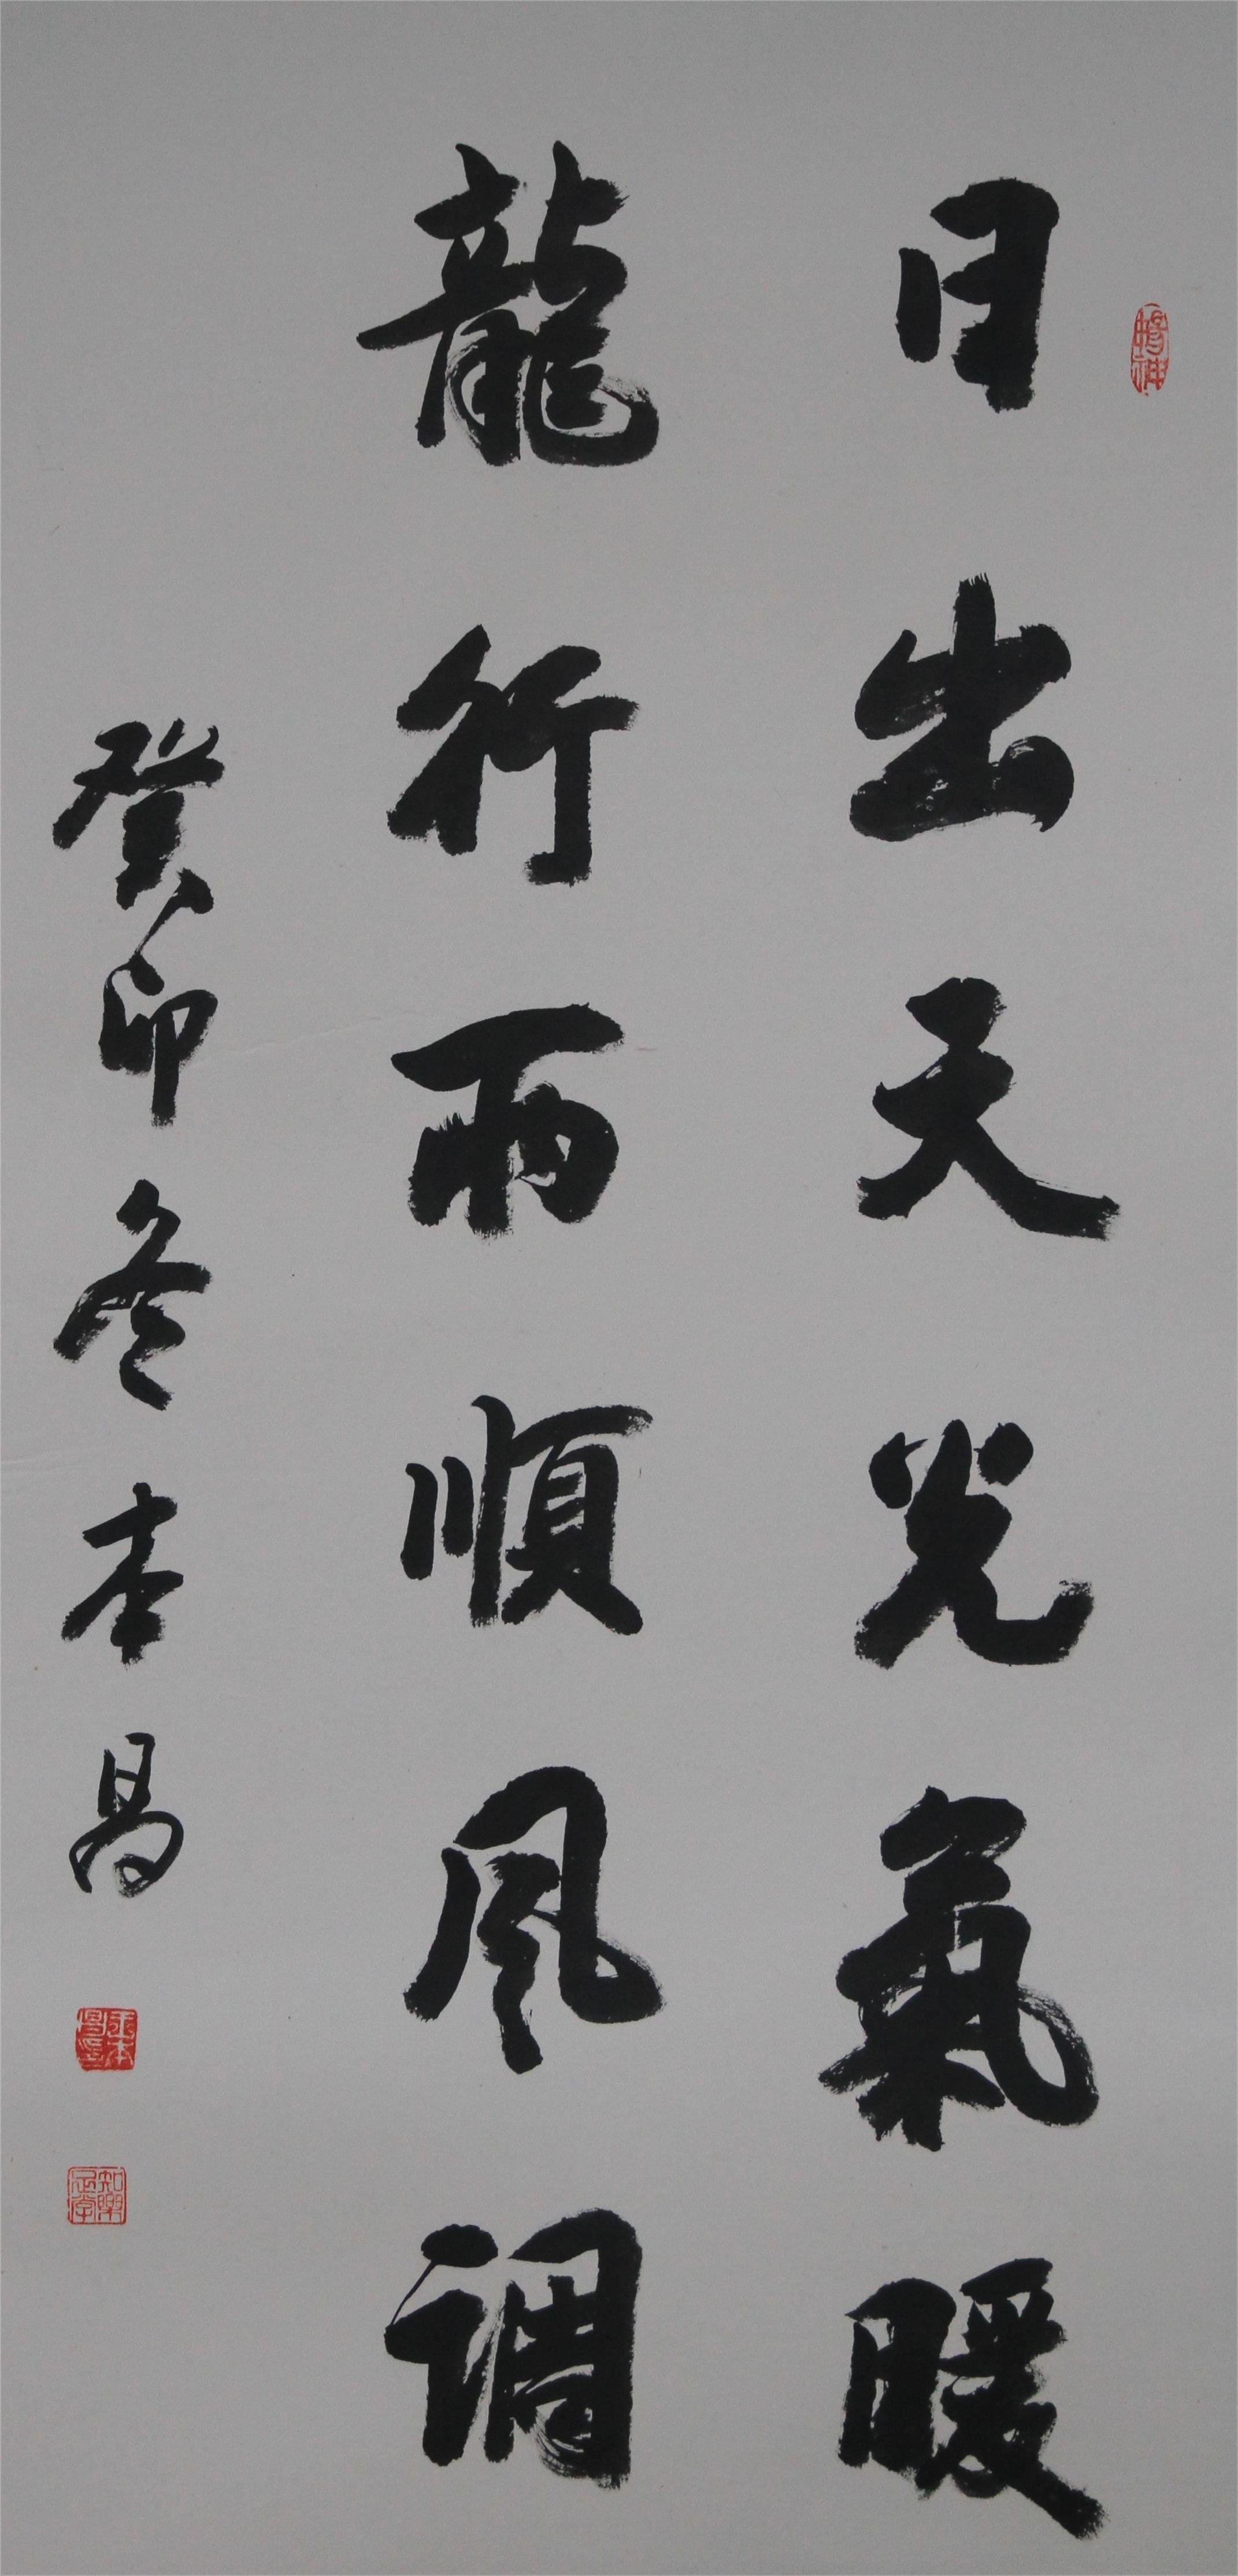 日出天光氣暖
龍行雨順風调
癸卯冬本昌